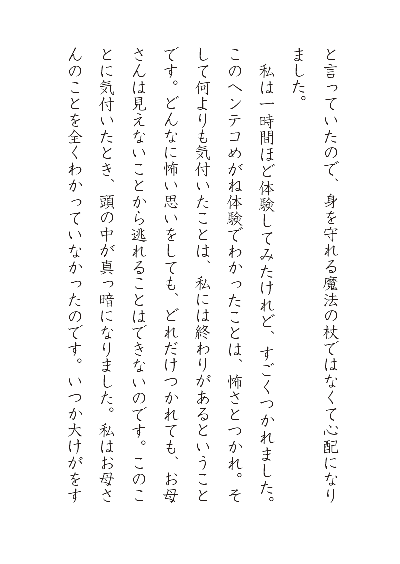 と言っていたので、身を守れる魔法の杖ではなくて心配になり
ました。
　私は一時間ほど体験してみたけれど、すごくつかれました。
このヘンテコめがね体験でわかったことは、怖さとつかれ。そ
して何よりも気付いたことは、私には終わりがあるということ
です。どんなに怖い思いをしても、どれだけつかれても、お母
さんは見えないことから逃れることはできないのです。このこ
とに気付いたとき、頭の中が真っ暗になりました。私はお母さ
んのことを全くわかっていなかったのです。いつか大けがをす